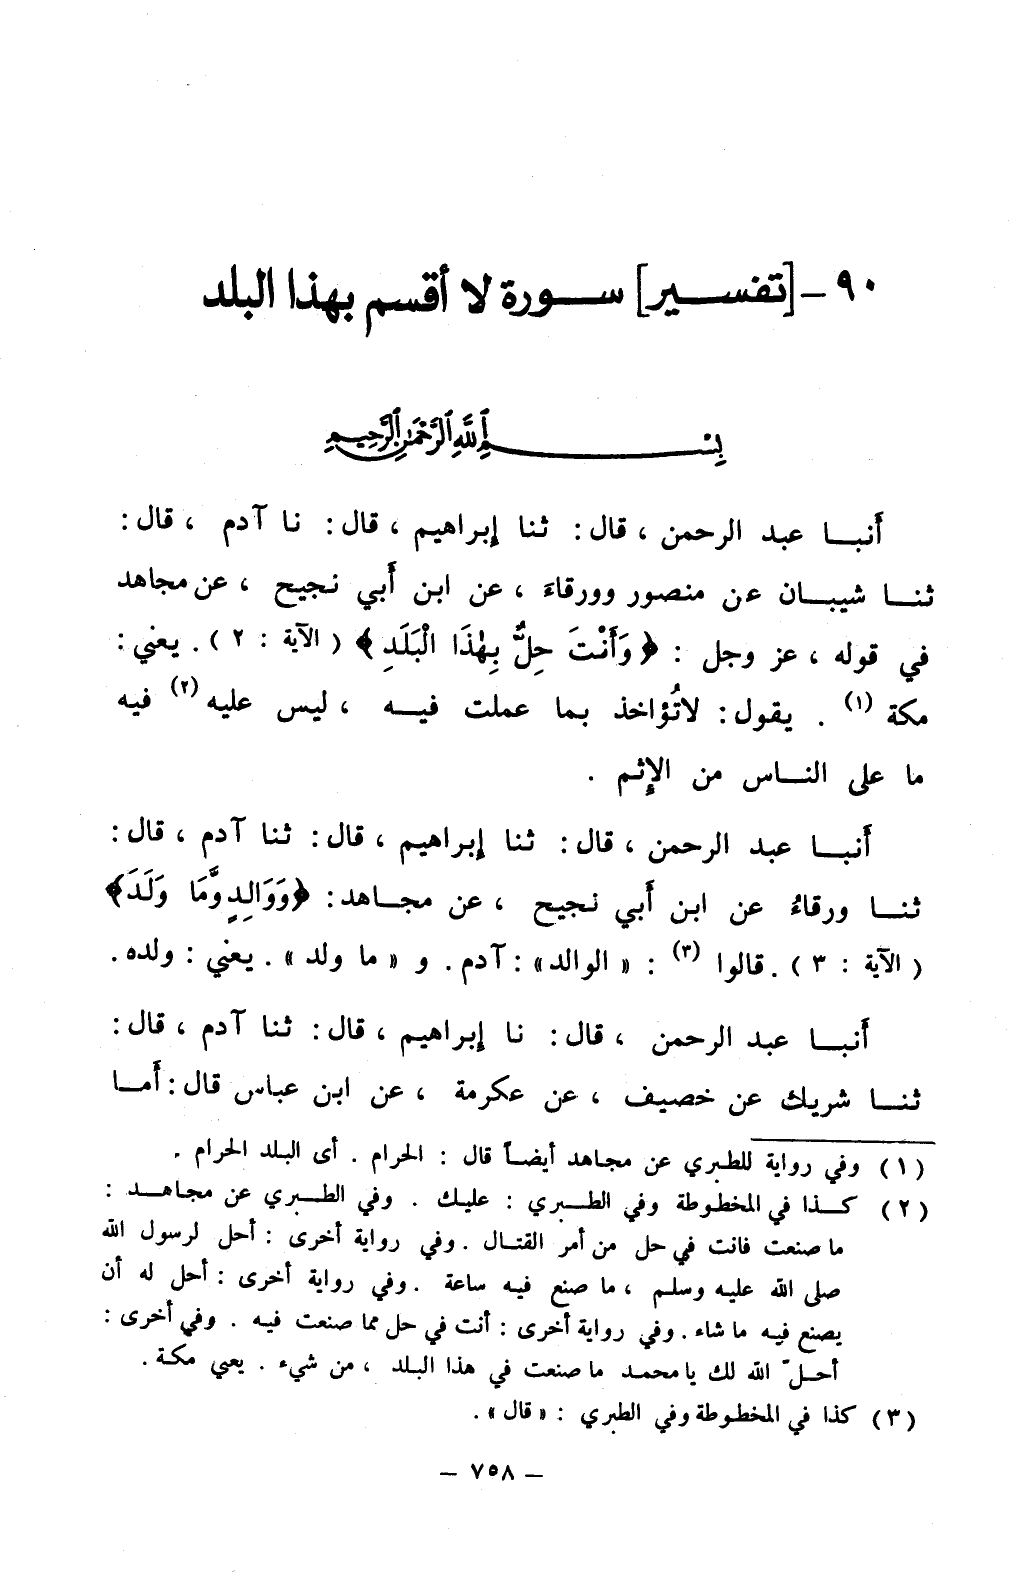 ٩٠ ـ [تفسير] سورة لا أقسم بهذا البلد
بِسْمِ ٱللَّهِ ٱلرَّحْمَٰنِ ٱلرَّحِيمِ
أَنبا عبد الرحمن ، قال : ثنا إبراهيم ، قال : نا آدم ، قال :
ثنا شيبان عن منصور وورقاءَ ، عن ابن أَبي نجيح ، عن مجاهد
في قوله ، عز وجل : ﴿ وَأَنْتَ حِلٌّ بِهٰذَا الْبَلَدِ ﴾ ( الآية : ٢ ) . يعني :
مكة (١) . يقول : لاتُؤاخذ بما عملت فيه ، ليس عليه (٢) فيه
ما على الناس من الإِثم .
أَنبا عبد الرحمن ، قال : ثنا إبراهيم ، قال : ثنا آدم ، قال :
ثنا ورقاءُ عن ابن أَبي نجيح ، عن مجاهد : ﴿وَوَالِدٍ وَّمَا وَلَدَ﴾
( الآية : ٣ ) . قالوا (٣) : « الوالد» : آدم . و « ما ولد » . يعني : ولده .
أَنبا عبد الرحمن ، قال : نا إبراهيم ، قال : ثنا آدم ، قال :
ثنا شريك عن خصيف ، عن عكرمة ، عن ابن عباس قال : أَما
(١) وفي رواية للطبري عن مجاهد أيضاً قال : الحرام . أى البلد الحرام .
(٢) كذا في المخطوطة وفي الطبري : عليك . وفي الطبري عن مجاهد :
ما صنعت فانت في حل من أمر القتال . وفي رواية أخرى : أحل لرسول الله
صلى الله عليه وسلم ، ما صنع فيه ساعة . وفي رواية أخرى : أحل له أن
يصنع فيه ما شاء . وفي رواية أخرى : أنت في حل مما صنعت فيه . وفي أخرى :
أحلّ الله لك يا محمد ما صنعت في هذا البلد ، من شيء . يعني مكة .
(٣) كذا في المخطوطة وفي الطبري : « قال » .
ـ ٧٥٨ ـ